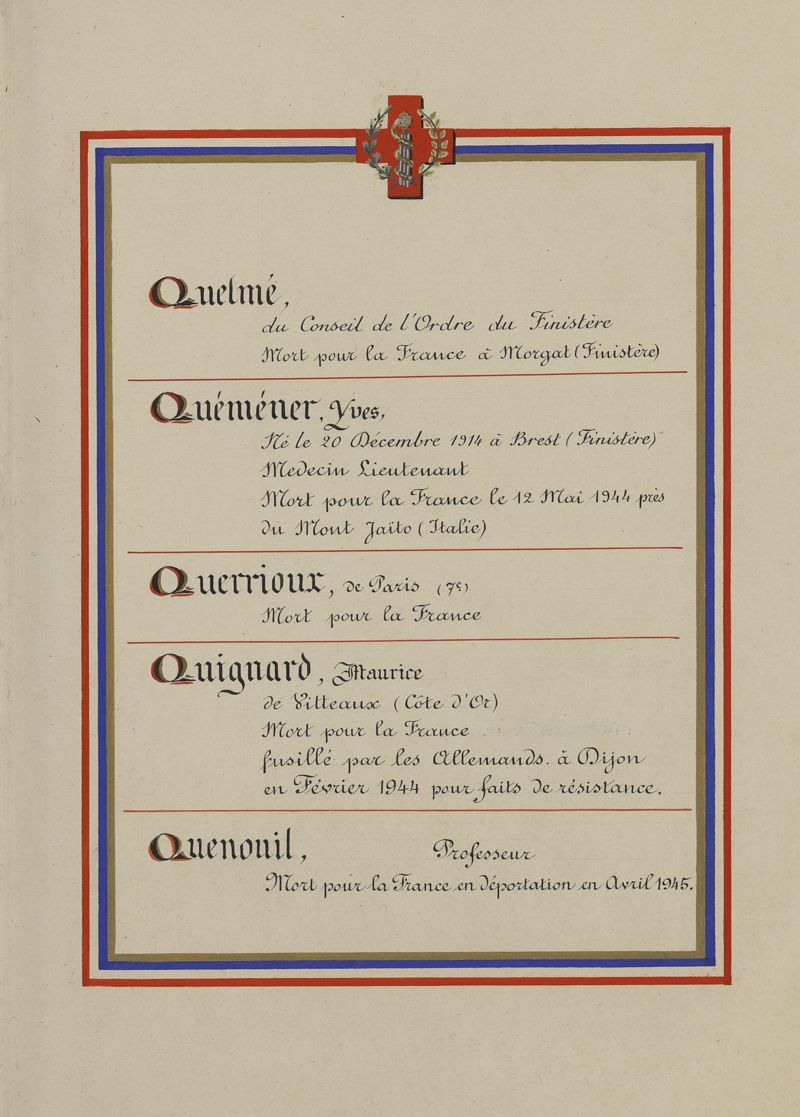 Quelmé,
du Conseil de l'Ordre du Finistère
Mort pour la France à Morgat (Finistère)
Quéméner, Yves,
Né le 20 Décembre 1914 à Brest (Finistère)
Medecin Lieutenant
Mort pour la France le 12 Mai 1944 près
du Mont Jaïto (Italie)
Querrioux, de Paris (7e)
Mort pour la France
Quignard, Maurice
de Vitteaux (Côte d'Or)
Mort pour la France
fusillé par les Allemands. à Dijon
en Février 1944 pour faits de résistance.
Quenouil, Professeur
Mort pour la France en déportation en Avril 1945.